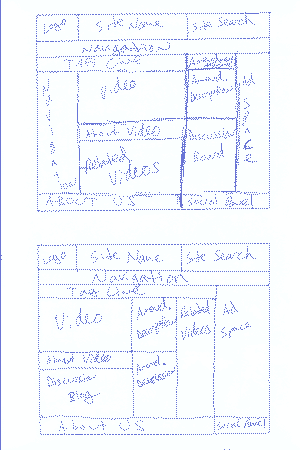 Logo Site Name Site Search
Navigation
Tag Line
Video
Description
Ad Space
Navigation
About Video
Related Videos
Discussion Board
About Us Social Panel
Logo Site Name Site Search
Navigation
Tag Line
Video
Description
Related Videos
Ad Space
About Video
Discussion
Blog
About Us Social Panel